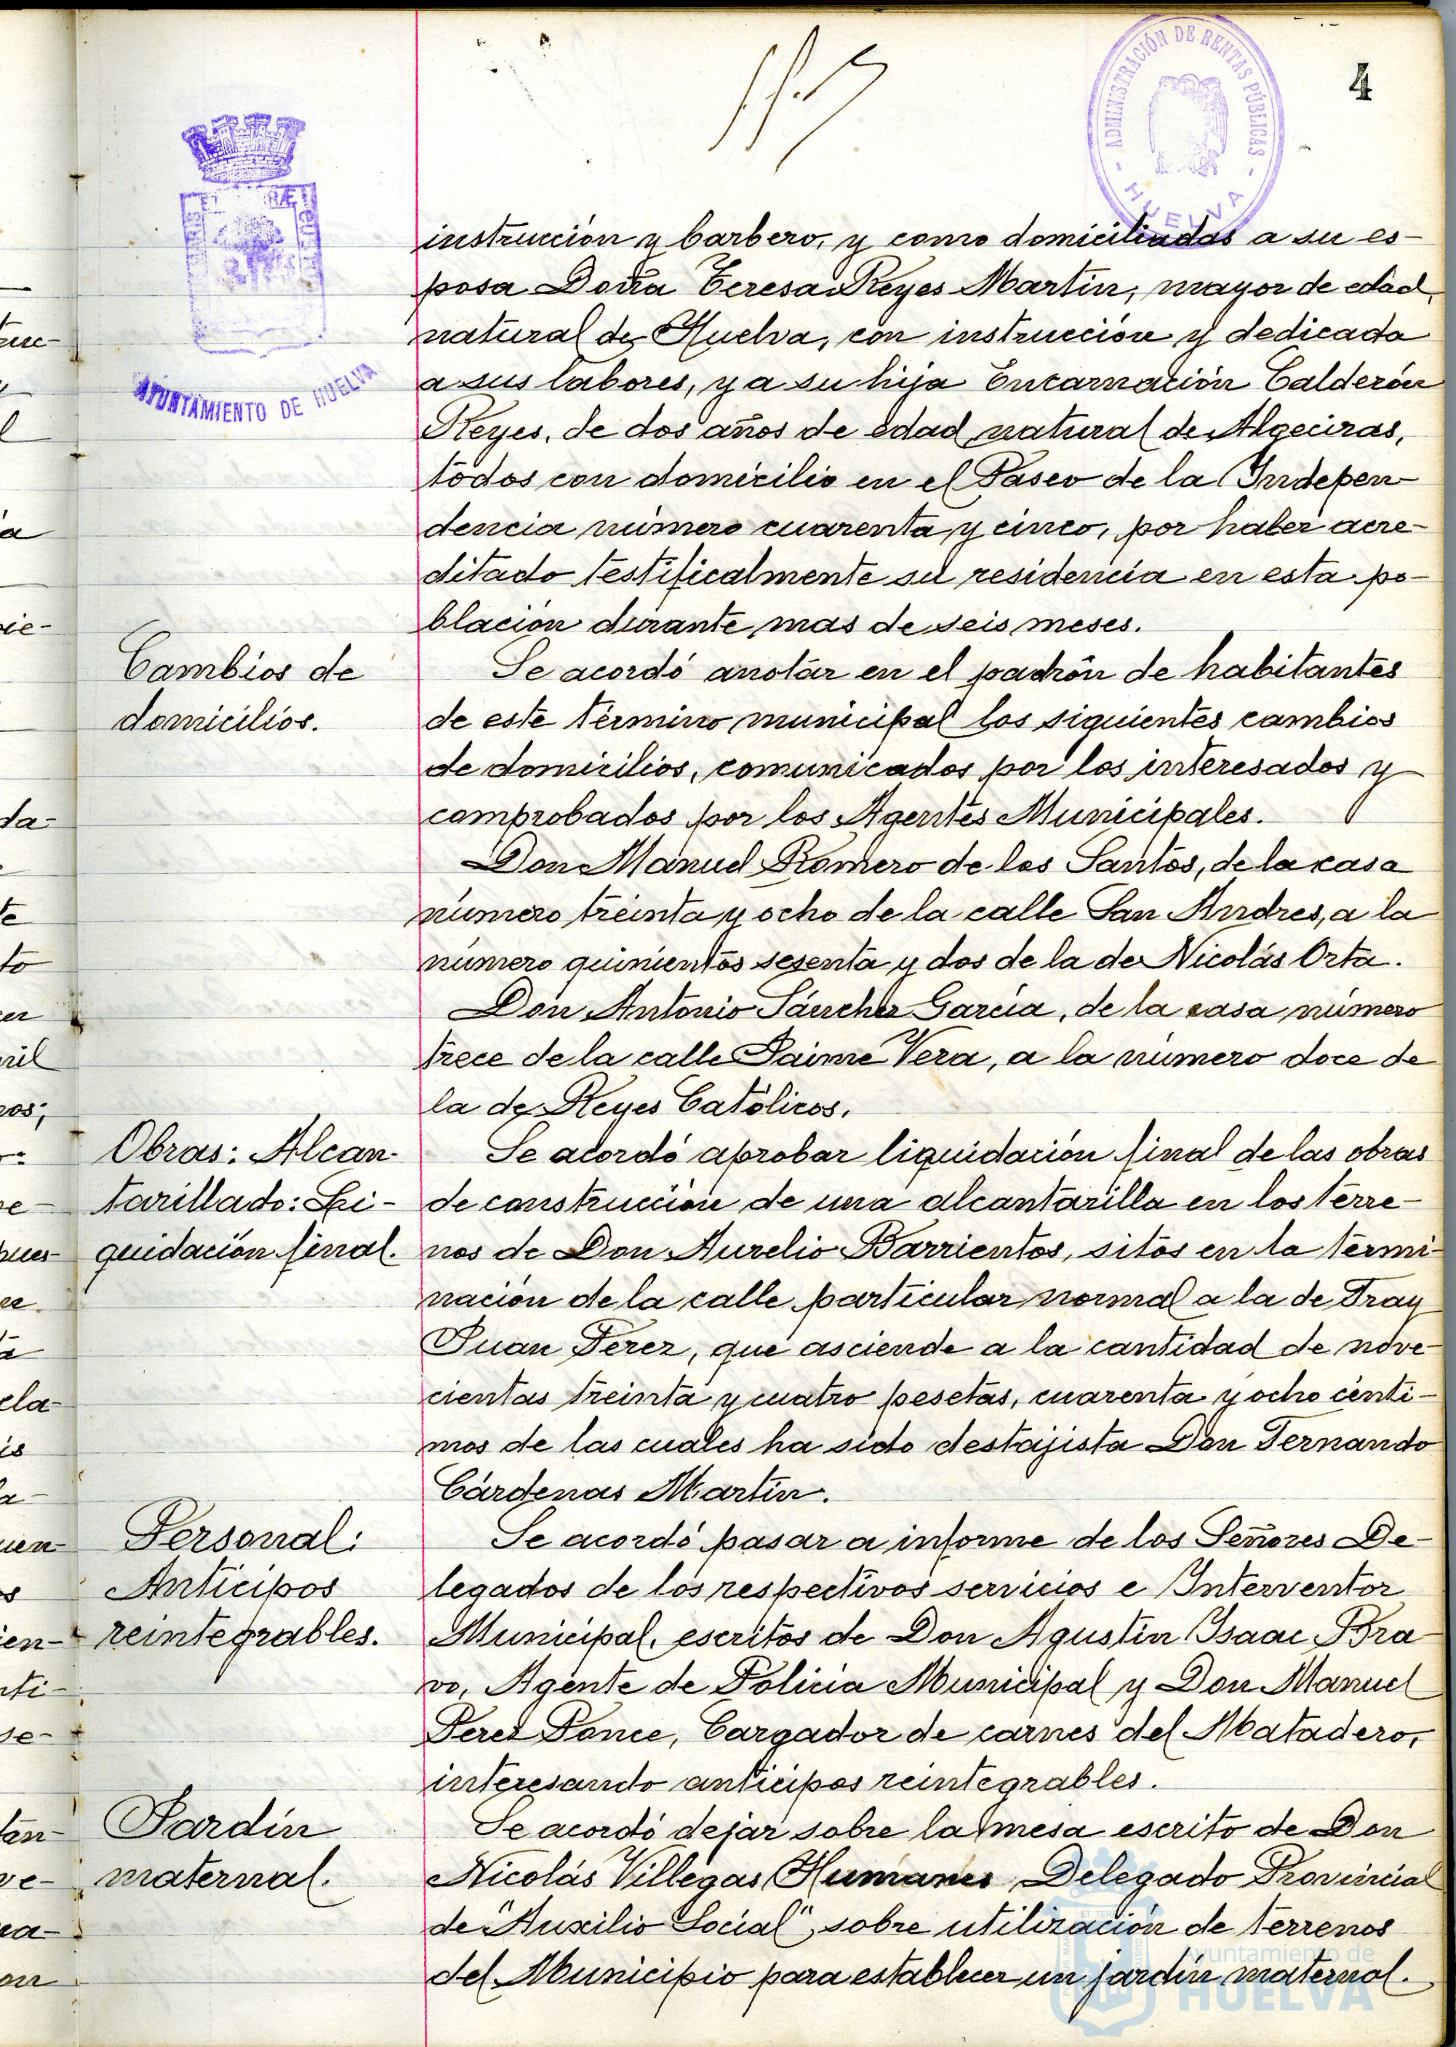 4
ADMINISTRACIÓN DE RENTAS PÚBLICAS
HUELVA
AYUNTAMIENTO DE HUELVA
instrucción y barbero, y como domiciliadas a su es-
posa Doña Teresa Reyes Martin, mayor de edad,
natural de Huelva, con instrucción y dedicada
a sus labores, y a su hija Encarnación Calderón
Reyes, de dos años de edad natural de Algeciras,
todos con domicilio en el Paseo de la Indepen-
dencia número cuarenta y cinco, por haber acre-
ditado testificalmente su residencia en esta po-
blación durante mas de seis meses.
Cambios de
domicilios.
Se acordó anotar en el padrón de habitantes
de este término municipal los siguientes cambios
de domicilios, comunicados por los interesados y
comprobados por los Agentes Municipales.
Don Manuel Romero de los Santos, de la casa
número treinta y ocho de la calle San Andres, a la
número quinientos sesenta y dos de la de Nicolás Orta.
Don Antonio Sánchez García, de la casa número
trece de la calle Jaime Vera, a la número doce de
la de Reyes Católicos.
Obras: Alcan-
tarillado: Li-
quidación final.
Se acordó aprobar liquidación final de las obras
de construcción de una alcantarilla en los terre-
nos de Don Aurelio Barrientos, sitos en la termi-
nación de la calle particular normal a la de Fray
Juan Perez, que asciende a la cantidad de nove-
cientas treinta y cuatro pesetas, cuarenta y ocho cénti-
mos de las cuales ha sido destajista Don Fernando
Cárdenas Martin.
Personal:
Anticipos
reintegrables.
Se acordó pasar a informe de los Señores De-
legados de los respectivos servicios e Interventor
Municipal, escritos de Don Agustin Isaac Bra-
vo, Agente de Policia Municipal y Don Manuel
Perez Ponce, Cargador de carnes del Matadero,
interesando anticipos reintegrables.
Jardín
maternal.
Se acordó dejar sobre la mesa escrito de Don
Nicolás Villegas Humanes Delegado Provincial
de "Auxilio Social", sobre utilización de terrenos
del Municipio para establecer un jardín maternal.
Ayuntamiento de
HUELVA